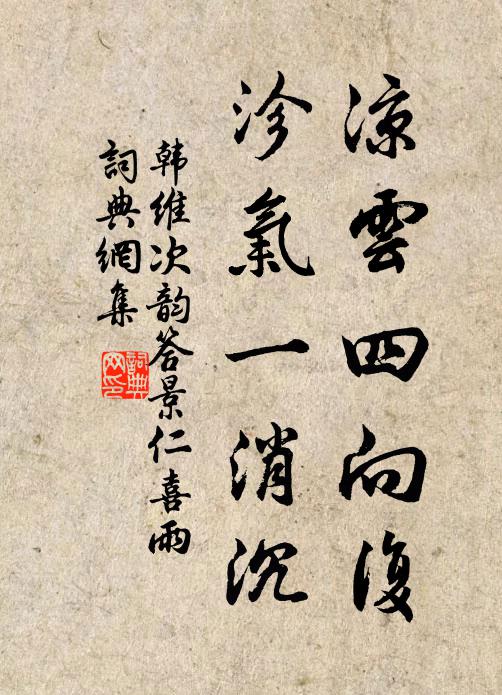 涼雲四向復
沴氣一消沉
韩維次韵答景仁喜雨
詞典網集
詞典網印